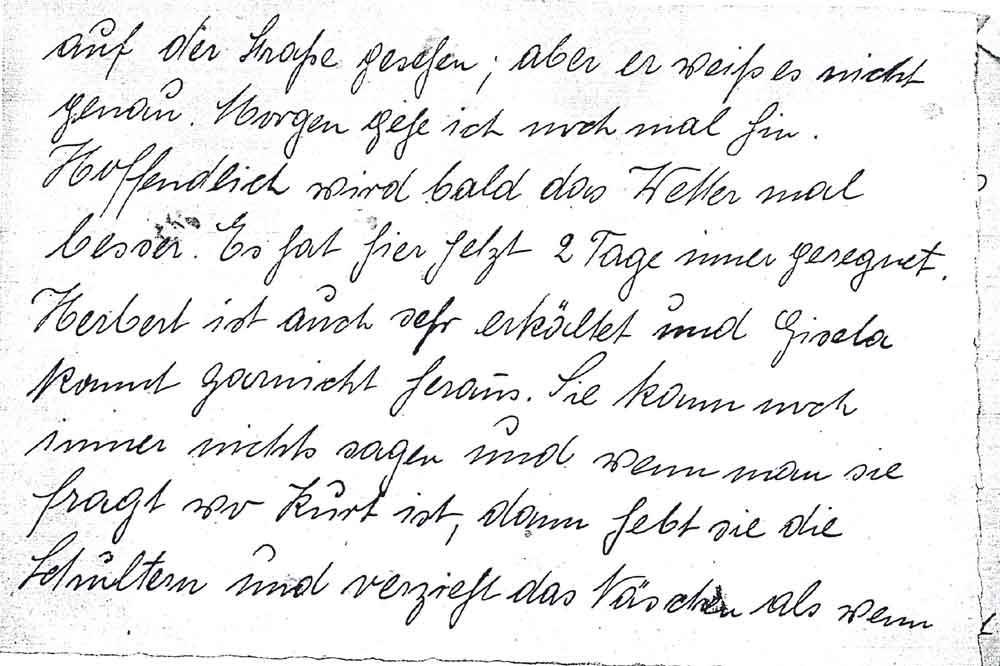 auf der Straße gesehen; aber er weiß es nicht
genau. Morgen gehe ich noch mal hin.
Hoffendlich wird bald das Wetter mal
besser. Es hat hier jetzt 2 Tage immer geregnet.
Herbert ist auch sehr erkältet und Gisela
kommt garnicht heraus. Sie kann noch
immer nichts sagen und wenn man sie
fragt wo Kurt ist, dann hebt sie die
Schultern und verzieht das Näschen als wenn